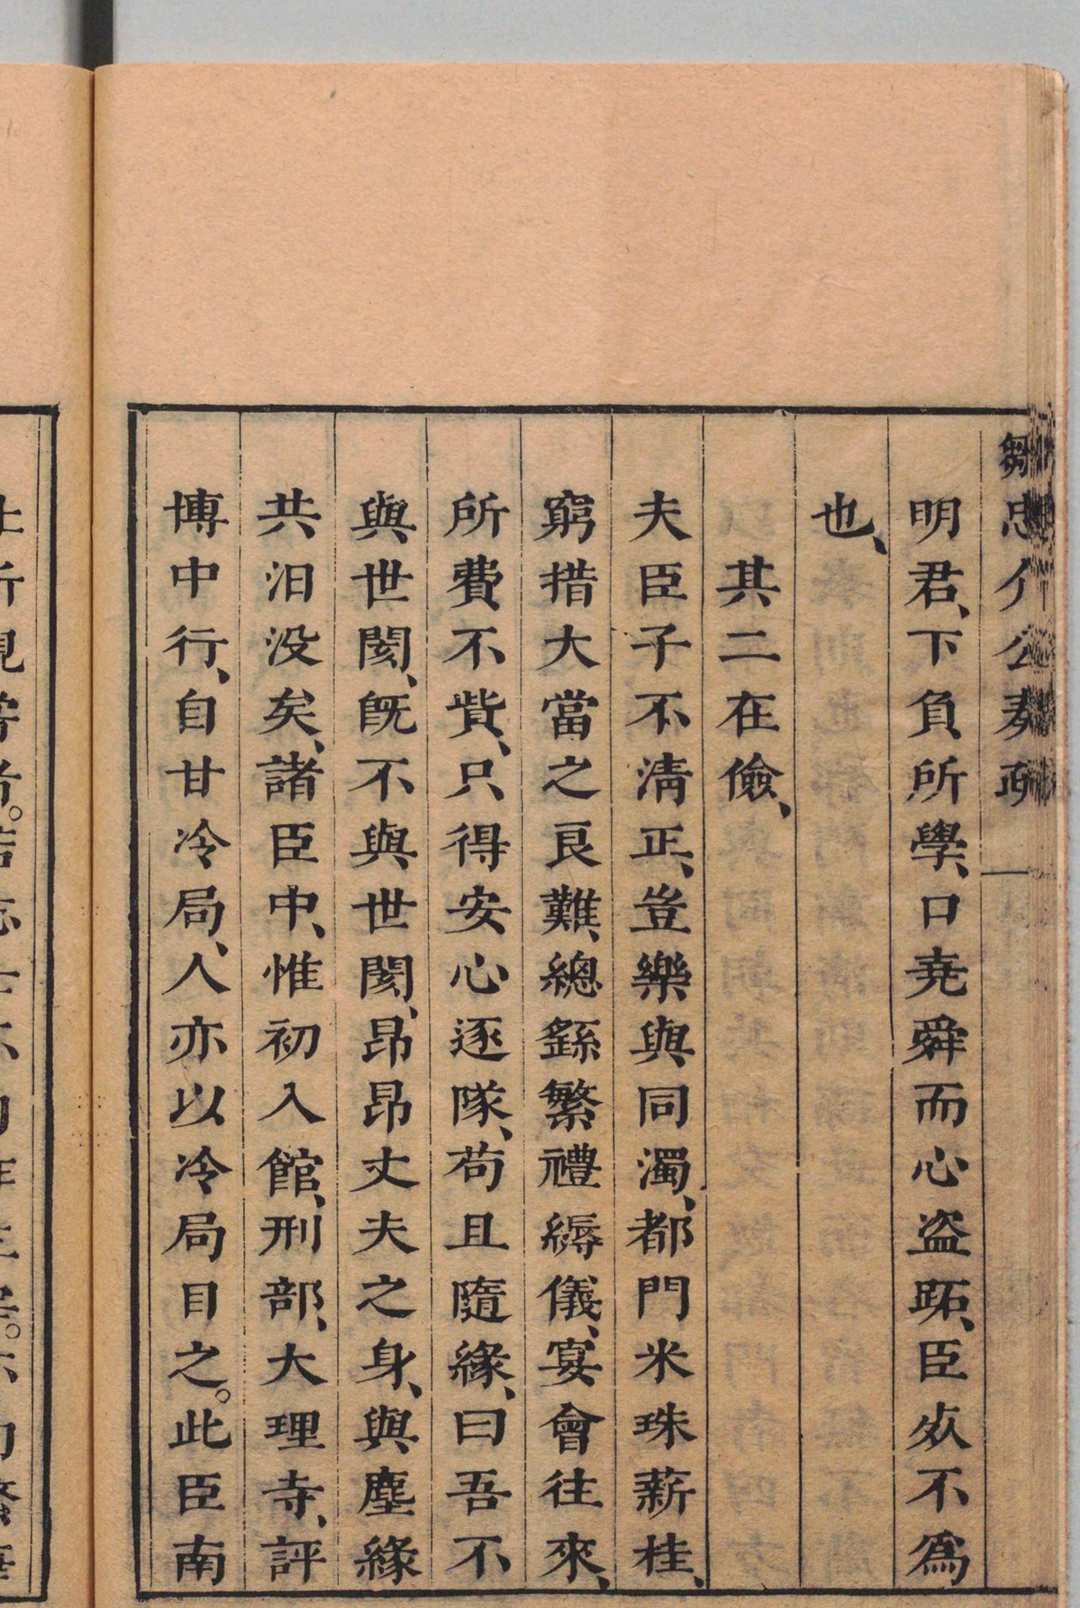 鄒忠介公奏疏
一
明君、下負所學、口堯舜而心盜跖、臣必不爲
也、
其二在儉、
夫臣子不清正、豈樂與同濁、都門米珠薪桂、
窮措大當之良難、總繇繁禮縟儀、宴會往來、
所費不貲、只得安心逐隊、苟且隨緣、曰吾不
與世閡、旣不與世閡、昂昂丈夫之身、與塵緣
共汨没矣、諸臣中、惟初入館、刑部、大理寺、評
博中行、自甘冷局、人亦以冷局目之。此臣南